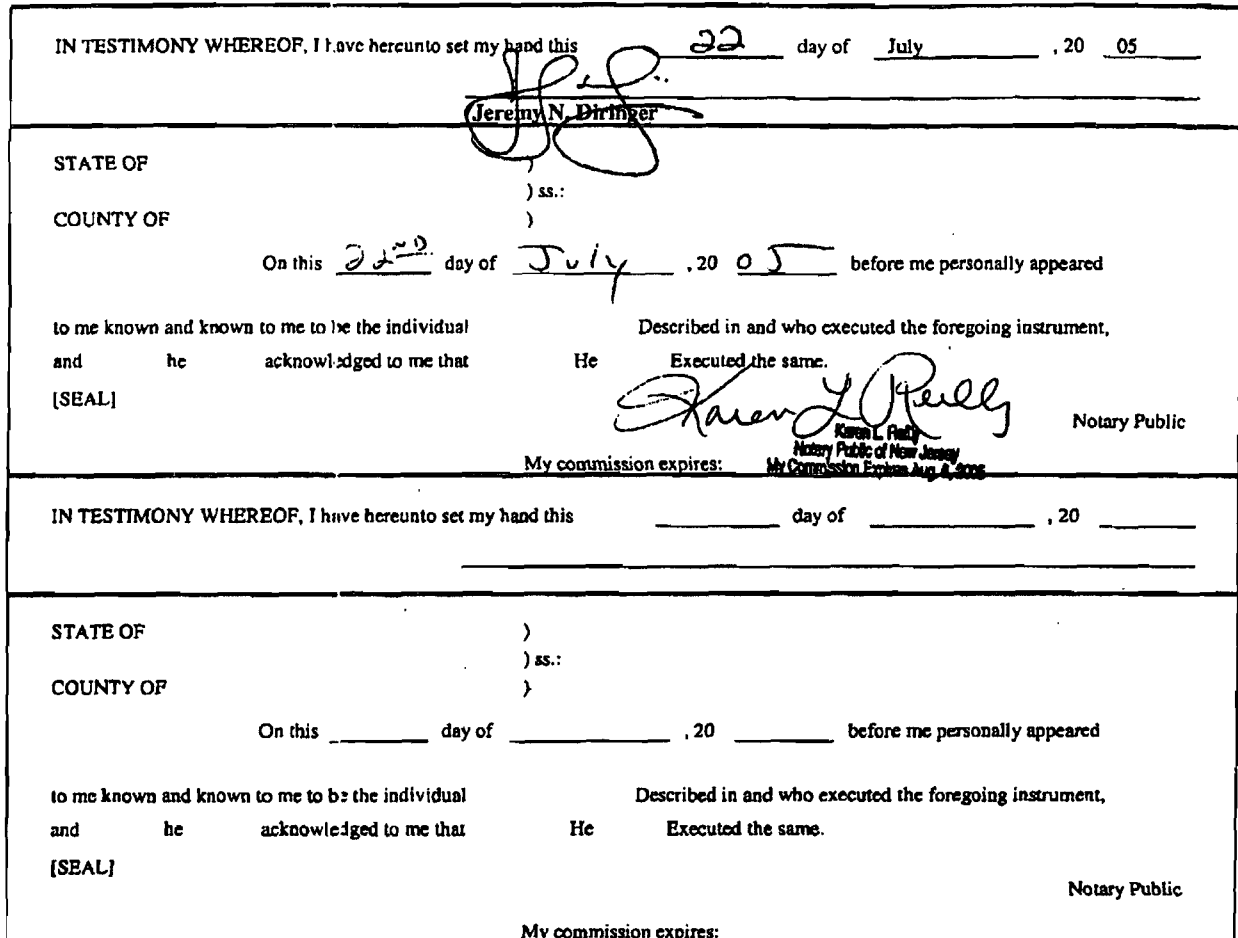 IN TESTIMONY WHEREOF, I have hereunto set my hand this 22 day of July , 20 05
Jeremy N. Diringer
STATE OF )
) ss.:
COUNTY OF )
On this 22ND day of July , 20 05 before me personally appeared
to me known and known to me to be the individual Described in and who executed the foregoing instrument,
and he acknowledged to me that He Executed the same.
[SEAL] Karen L Reilly Notary Public
Karen L. Reilly
Notary Public of New Jersey
My commission expires: My Commission Expires Aug. 4,
IN TESTIMONY WHEREOF, I have hereunto set my hand this day of , 20
STATE OF )
) ss.:
COUNTY OF )
On this day of , 20 before me personally appeared
to me known and known to me to be the individual Described in and who executed the foregoing instrument,
and he acknowledged to me that He Executed the same.
[SEAL]
Notary Public
My commission expires: